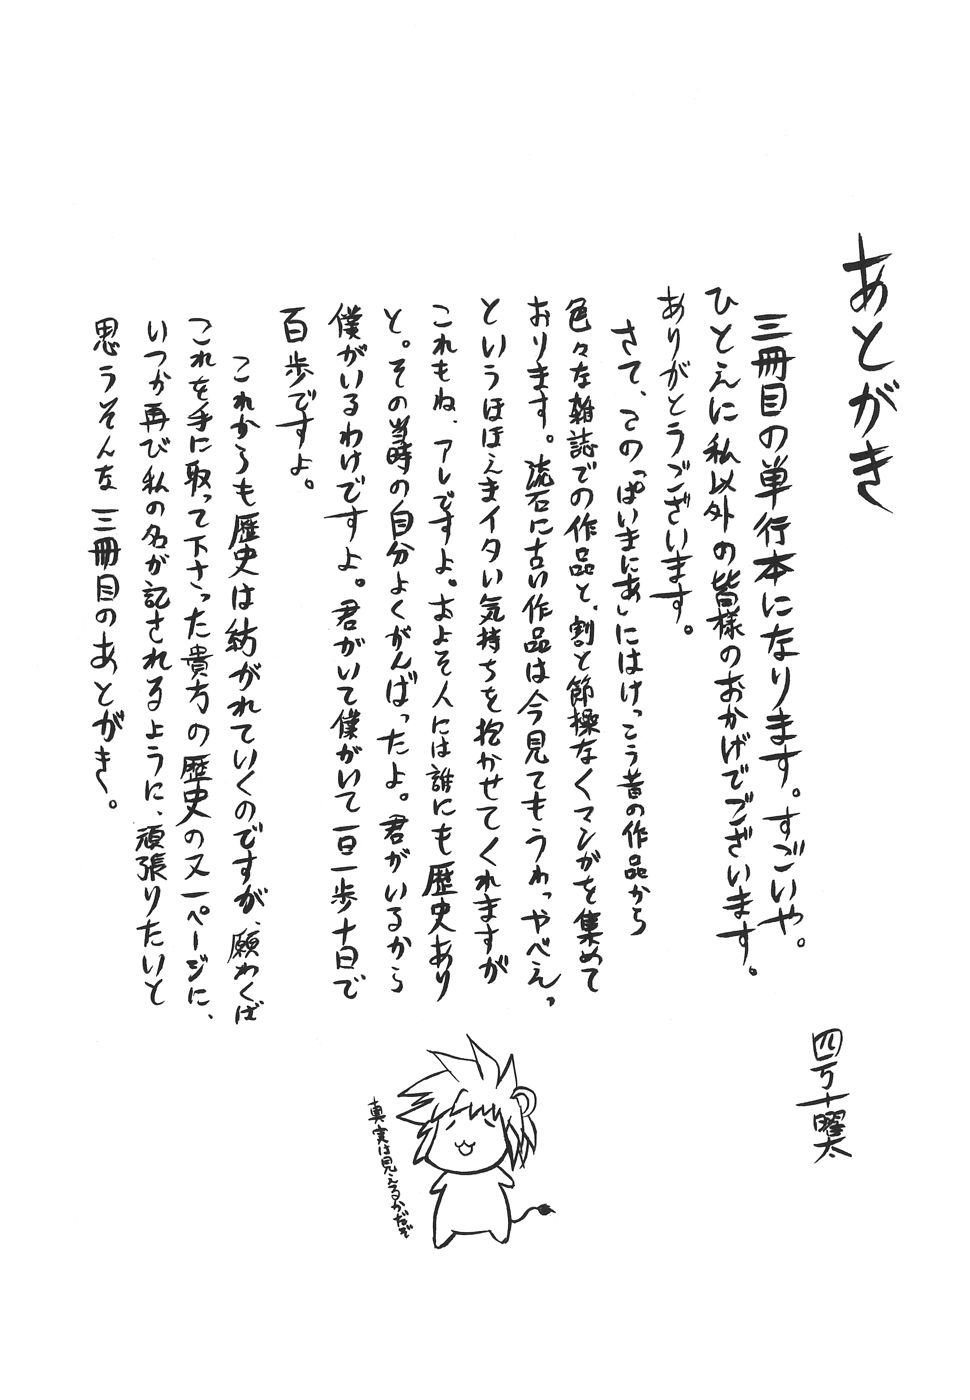 あとがき
四万十曜太
三冊目の単行本になります。すごいや。
ひとえに私以外の皆様のおかげでございます。
ありがとうございます。
さて、この『ぱいまにあ』にはけっこう昔の作品から
色々な雑誌での作品と、割と節操なくマンガを集めて
おります。流石に古い作品は今見てもうわっやべえっ
というほほえまイタい気持ちを抱かせてくれますが
これもね、アレですよ。およそ人には誰にも歴史あり
と。その当時の自分よくがんばったよ。君がいるから
僕がいるわけですよ。君がいて僕がいて一日一歩十日で
百歩ですよ。
これからも歴史は紡がれていくのですが、願わくば
これを手に取って下さった貴方の歴史の又一ページに、
いつか再び私の名が記されるように、頑張りたいと
思うそんな三冊目のあとがき。
真実は見えるかだぞ